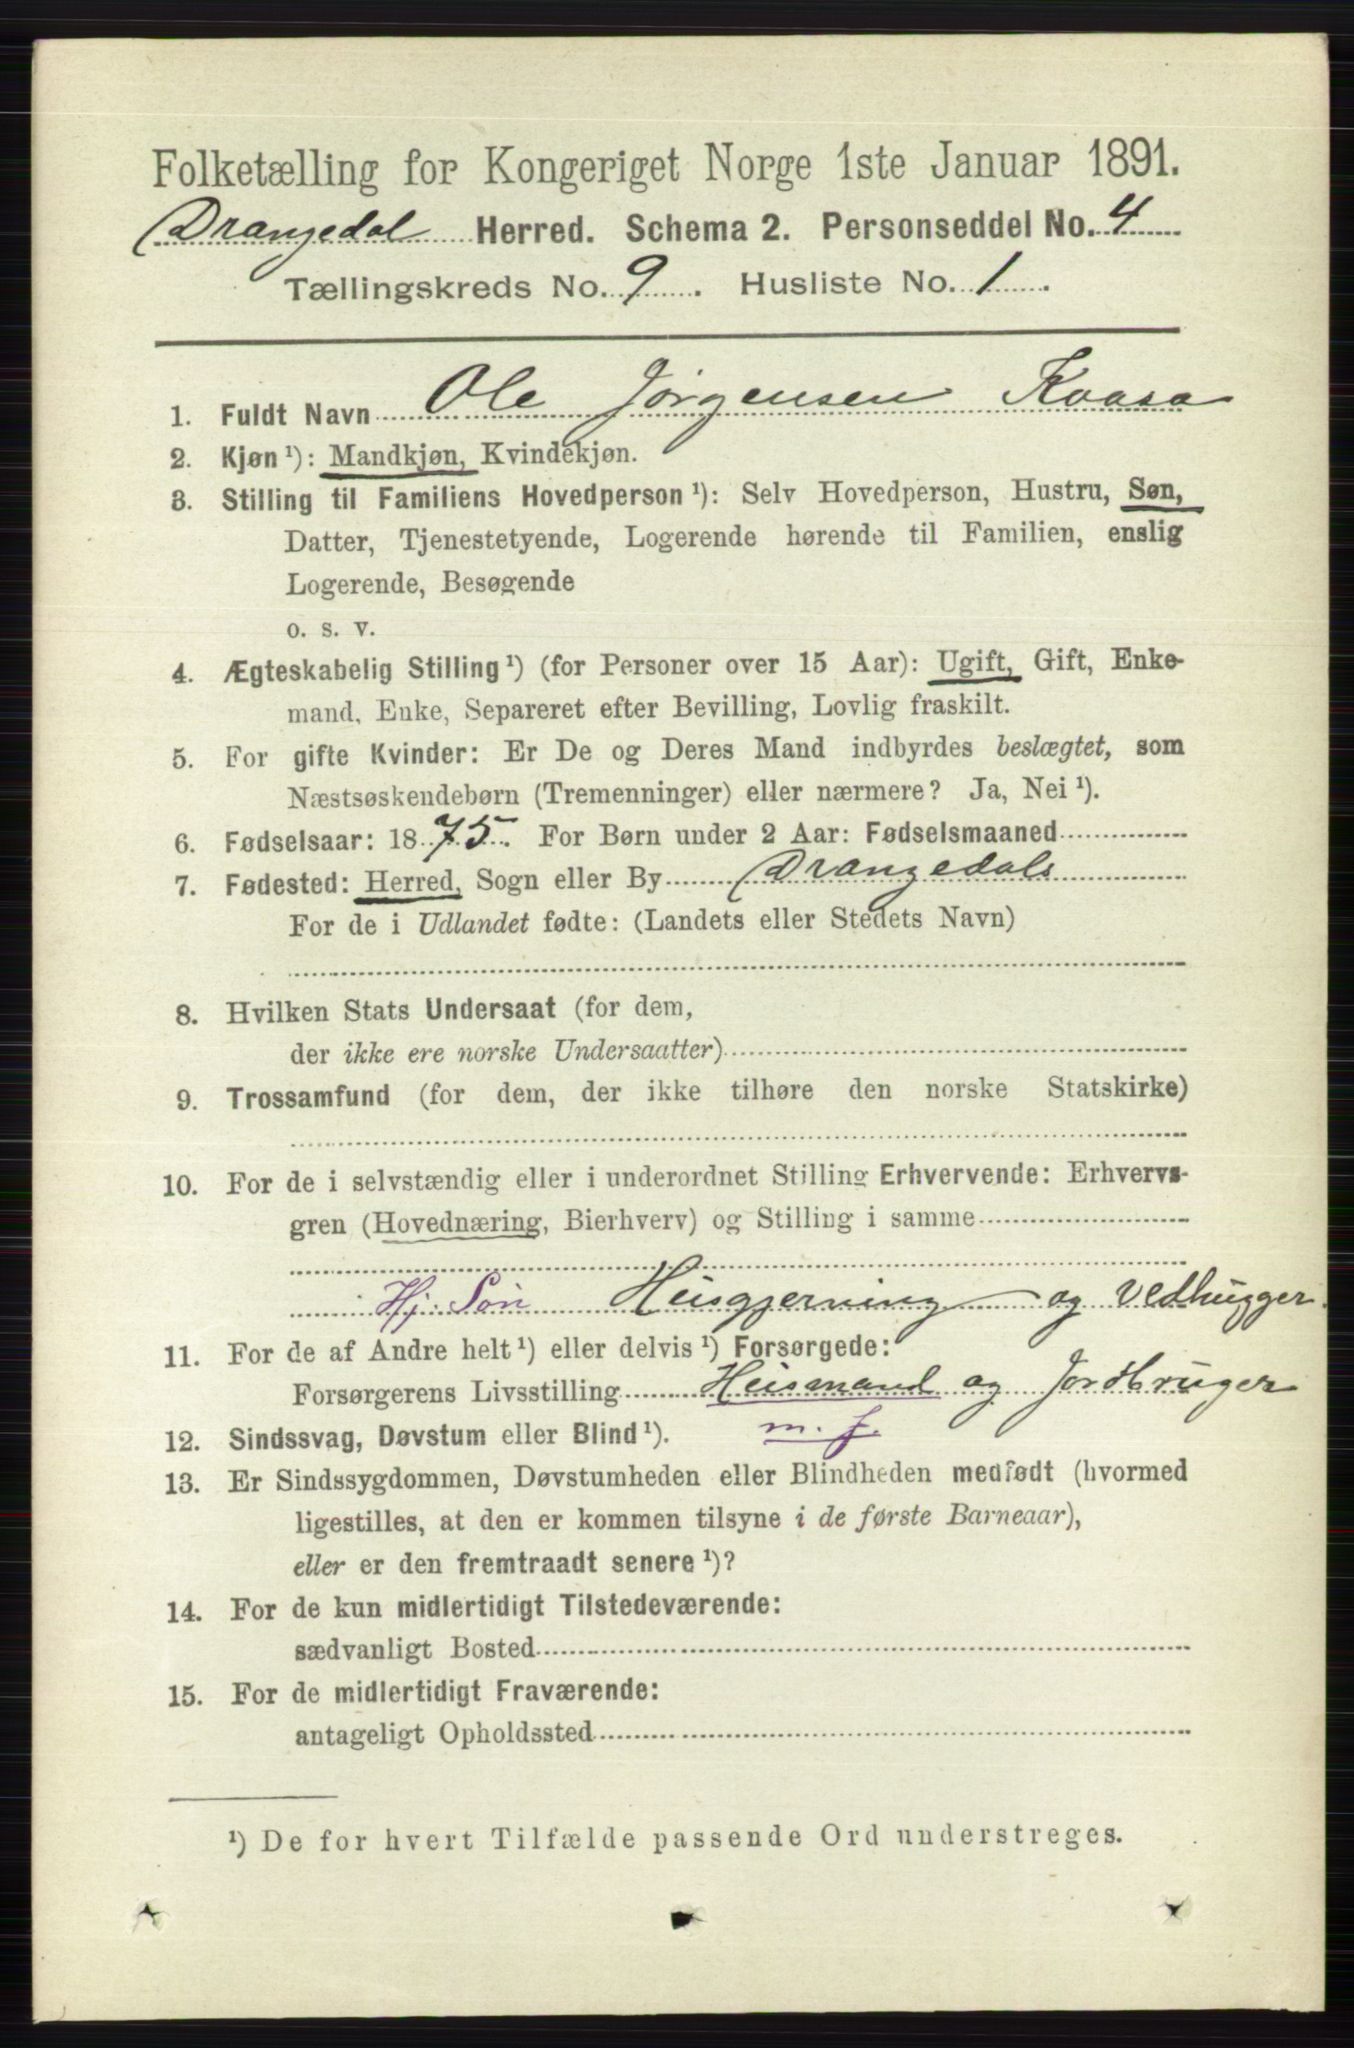 Folketælling for Kongeriget Norge 1ste Januar 1891.
Drangedal Herred. Schema 2. Personseddel No. 4
Tællingskreds No. 9. Husliste No. 1.
1. Fuldt Navn Ole Jørgensen Kaasa
2. Kjøn ¹): Mandkjøn, Kvindekjøn.
3. Stilling til Familiens Hovedperson ¹): Selv Hovedperson, Hustru, Søn,
Datter, Tjenestetyende, Logerende hørende til Familien, enslig
Logerende, Besøgende
o. s. v.
4. Ægteskabelig Stilling ¹) (for Personer over 15 Aar): Ugift, Gift, Enke-
mand, Enke, Separeret efter Bevilling, Lovlig fraskilt.
5. For gifte Kvinder: Er De og Deres Mand indbyrdes beslægtet, som
Næstsøskendebørn (Tremenninger) eller nærmere? Ja, Nei ¹).
6. Fødselsaar: 1875. For Børn under 2 Aar: Fødselsmaaned
7. Fødested: Herred, Sogn eller By Drangedals
For de i Udlandet fødte: (Landets eller Stedets Navn)
8. Hvilken Stats Undersaat (for dem,
der ikke ere norske Undersaatter)
9. Trossamfund (for dem, der ikke tilhøre den norske Statskirke)
10. For de i selvstændig eller i underordnet Stilling Erhvervende: Erhvervs-
gren (Hovednæring, Bierhverv) og Stilling i samme
Hj. Søn Husgjerning og Vedhugger.
11. For de af Andre helt ¹) eller delvis ¹) Forsørgede:
Forsørgerens Livsstilling Husmand og Jordbruger
m. J.
12. Sindssvag, Døvstum eller Blind ¹).
13. Er Sindssygdommen, Døvstumheden eller Blindheden medfødt (hvormed
ligestilles, at den er kommen tilsyne i de første Barneaar),
eller er den fremtraadt senere ¹)?
14. For de kun midlertidigt Tilstedeværende:
sædvanligt Bosted
15. For de midlertidigt Fraværende:
antageligt Opholdssted
¹) De for hvert Tilfælde passende Ord understreges.